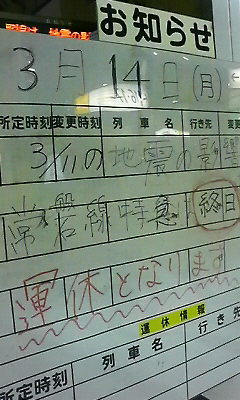 お知らせ
3月14日(月)
所定時刻 変更時刻 列車名 行き先 変更
3/11の地震の影響
常磐線特急は終日
運休となります
運休情報
所定時刻 列車名 行き先